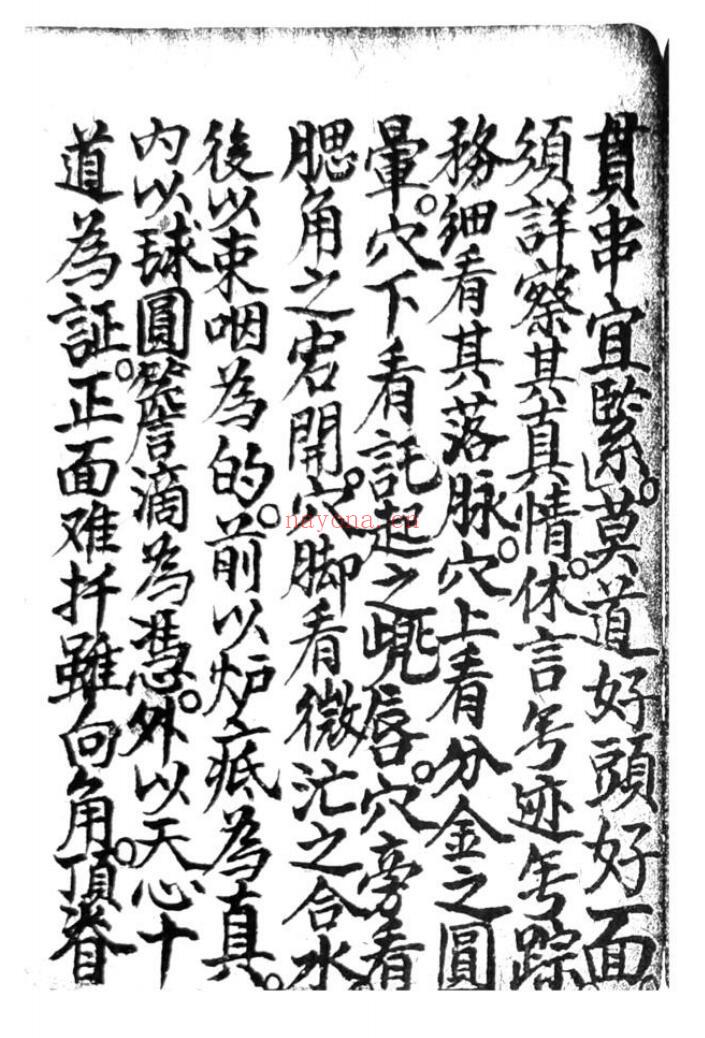 貫串宜緊。莫道好頭好面。
須詳察其真情。休言号迹号踪。
務細看其落脉。穴上看分金之圓
暈。穴下看託起之兠唇。穴旁看
腮角之宕開。穴脚看微茫之合水。
後以束咽為的。前以炉底為真。
内以球圓簷滴為憑。外以天心十
道為証。正面难扦雖向角。頂脊
nayona.cn